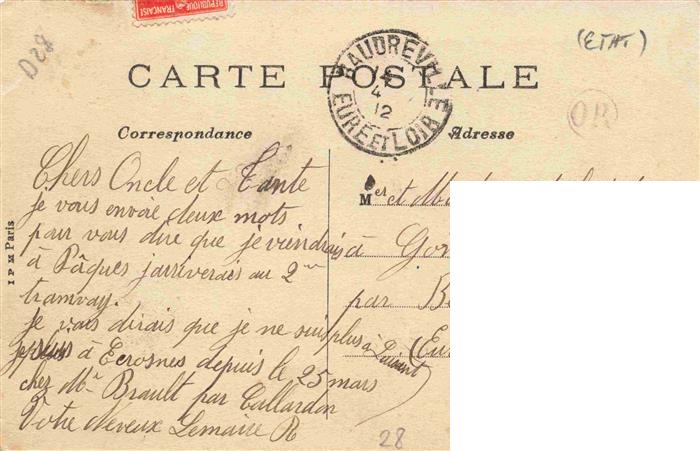 RÉPUBLIQUE FRANÇAISE
D28
(ETAT)
CARTE POSTALE
BAUDREVILLE
4
12
EURE ET LOIR
Correspondance
Adresse
Chers Oncle et Tante
je vous envoie deux mots
pour vous dire que je viendrais
à Pâques j'arriverais au 2me
tramway.
je vais dirais que je ne suis plus à
je suis à Ecrosnes depuis le 25 mars
chez Mr Brault par Gallardon
Votre Neveux Lemaire R
Mer et
à Gon
par Be
(Eu
I P M Paris
28